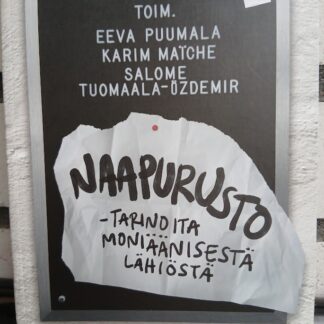 TOIM.
EEVA PUUMALA
KARIM MAÏCHE
SALOME
TUOMAALA-ÖZDEMIR
NAAPURUSTO
-TARINOITA
MONIÄÄNISESTÄ
LÄHIÖSTÄ